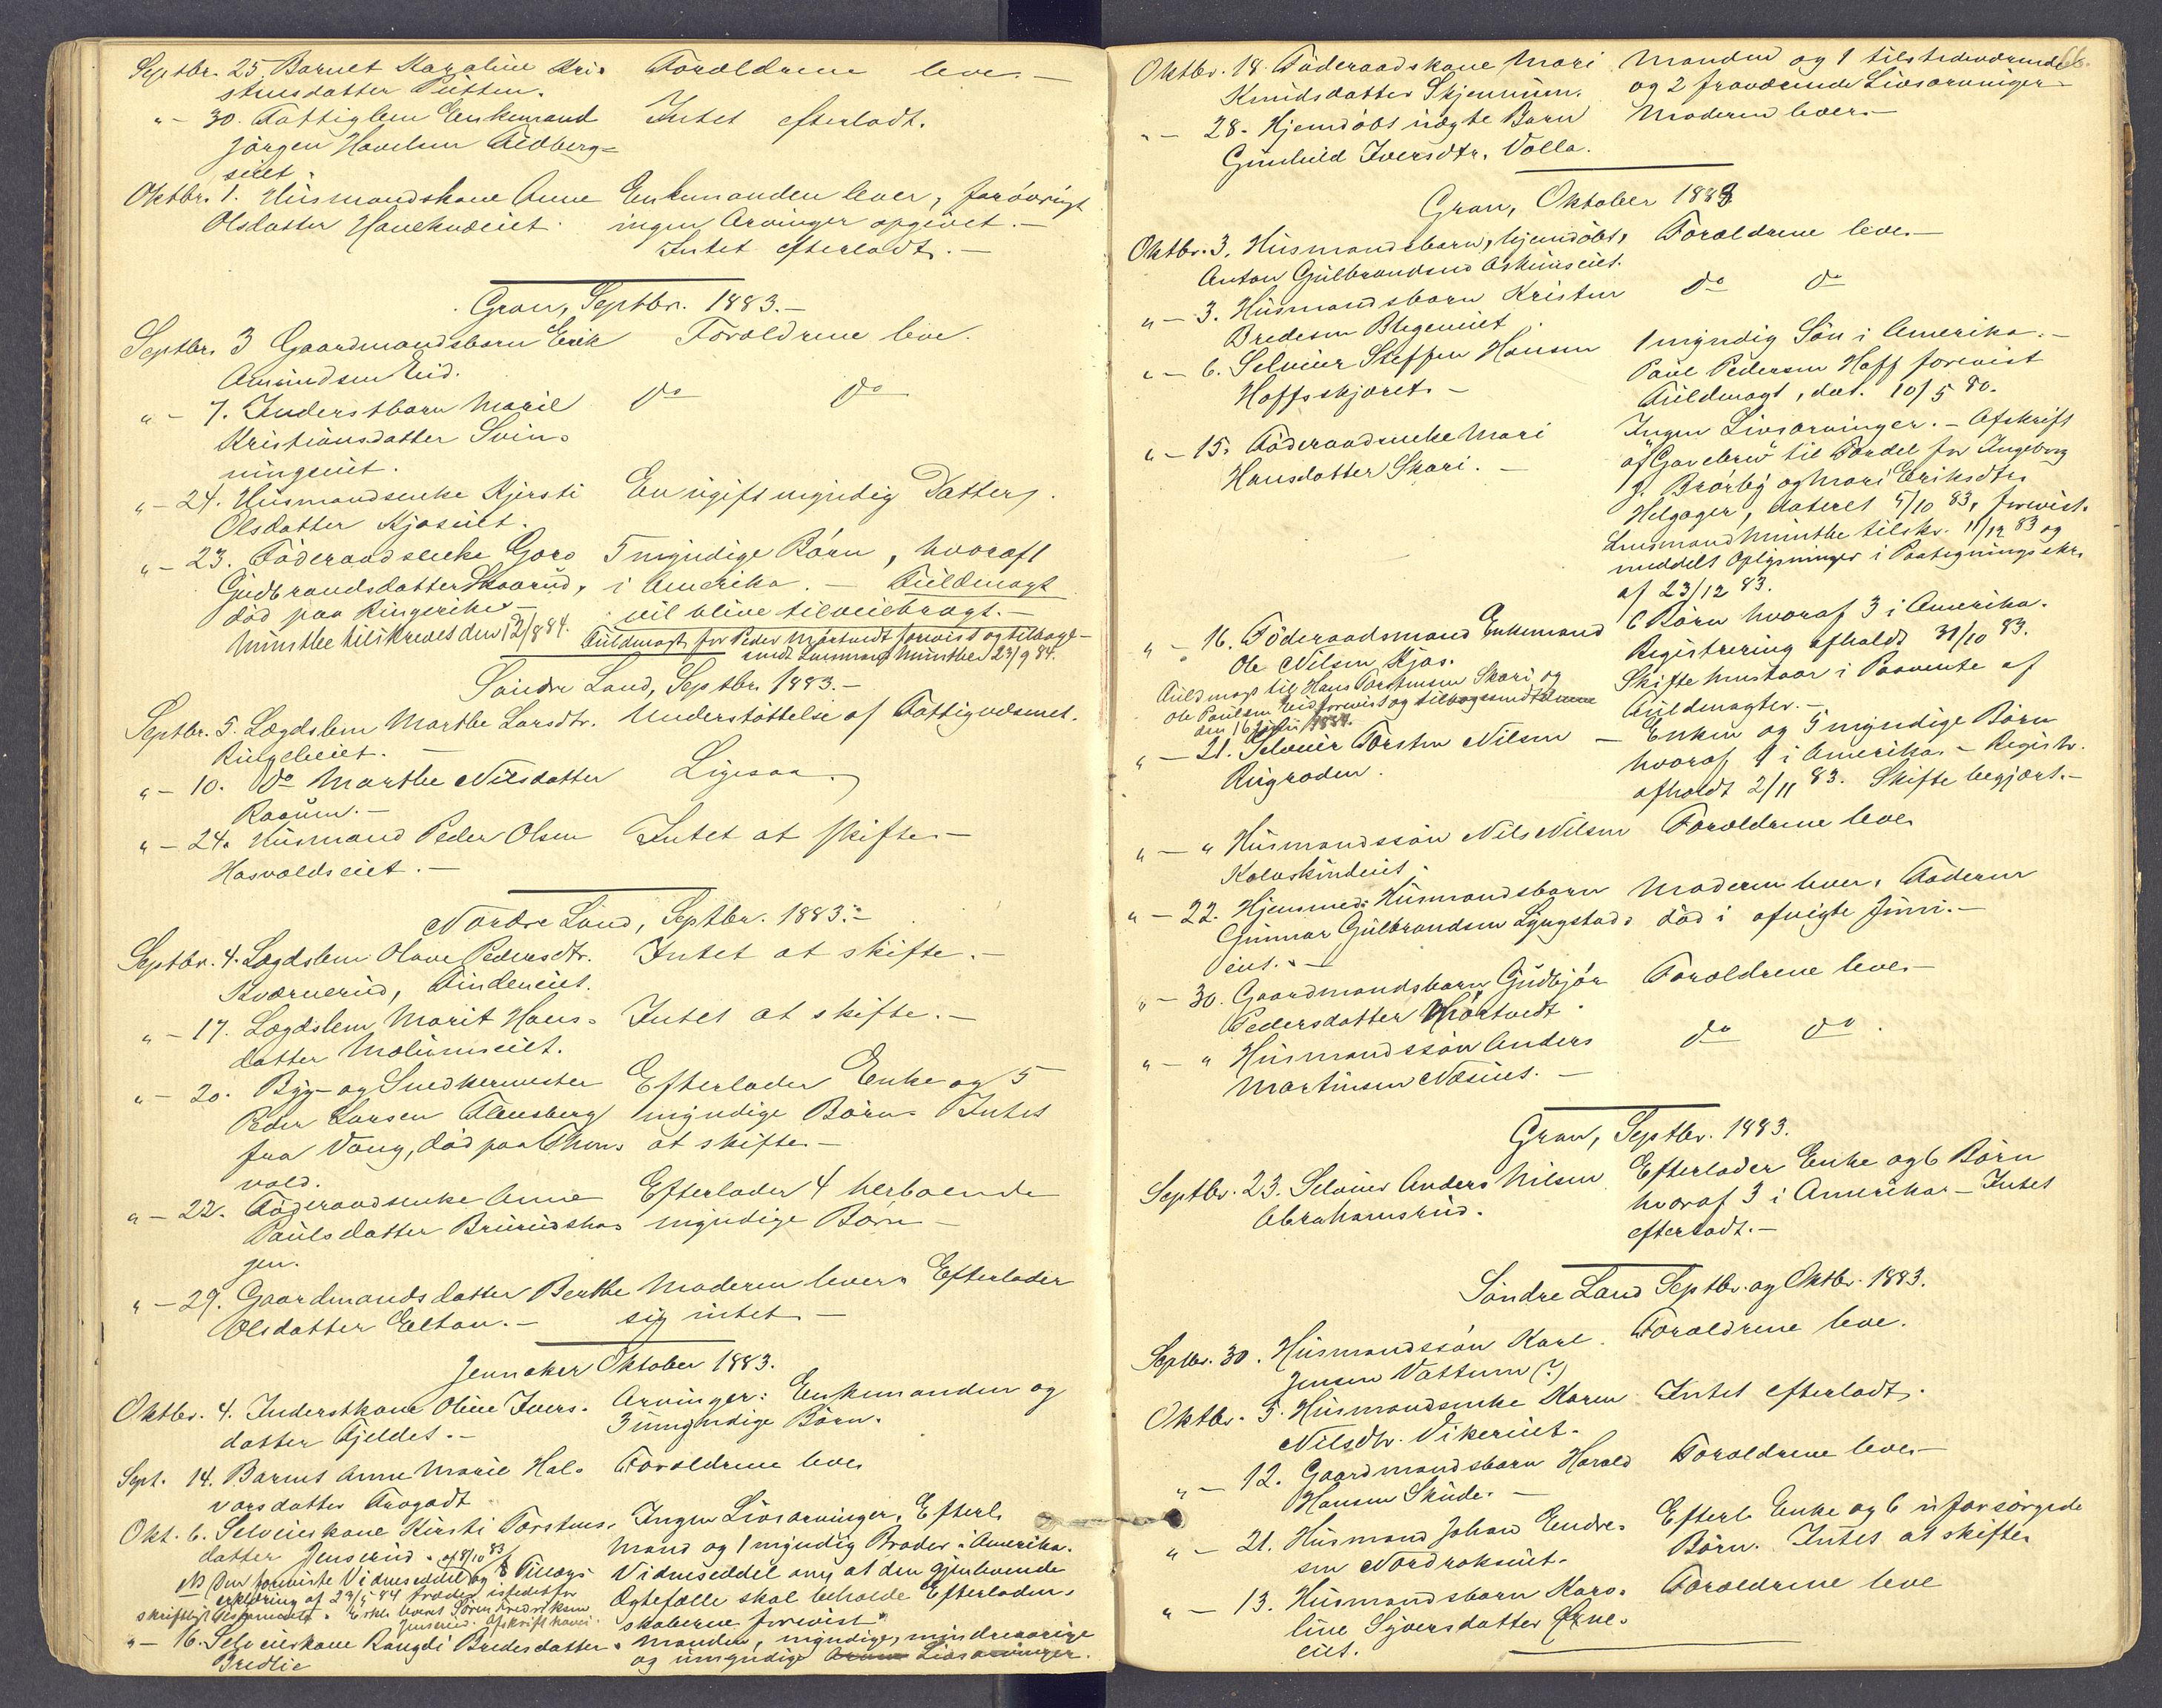 Septbr. 25. Barnet Karoline Kri- Forældrene leve. —
stiansdatter Putten.
" - 30. Fattiglem Enkemand Intet efterladt.
Jörgen Havelsen
eiet.
Oktbr. 1. Husmandskone Anne Enkemanden lever, forövrigt
Olsdatter ingen Arvinger opgivet. —
Intet efterladt. —
Gran, Septbr. 1883. —
Septbr. 3 Gaardmandsbarn Erik Forældrene leve.
Amundsen Eid.
" - 7. Inderstbarn Marie do do
Kristiansdatter Svin-
ningeiet.
" - 24. Husmandsenke Kjersti En ugift myndig Datter.
Olsdatter Kjoseiet.
" - 23. Föderaadsenke Goro 5 myndige Börn, hvoraf 1
Gudbrandsdatter Skaarud, i Amerika. — Fuldmagt
död paa Ringerike — vil blive tilveiebragt. —
Münthe tilskrevet den 12/8 84. Fuldmagt for Peder Mörtvedt forevist og tilbage-
sendt Lensmand Münthe 23/9 84.
Söndre Land, Septbr. 1883. —
Septbr. 5. Lægdslem Marthe Larsdtr. Understöttelse af Fattigvæsenet.
Ringelieiet. —
" - 10. Do Marthe Nilsdatter Ligesaa.
Raaum. —
" - 24. Husmand Peder Olsen Intet at skifte. —
Hasvoldseiet. —
Nordre Land, Septbr. 1883. —
Septbr. 4. Lægdslem Olave Pedersdtr. Intet at skifte. —
Kværnerud, Findeneiet.
" - 17. Lægdslem Marit Hans- Intet at skifte. —
datter
" - 20. Byg- og Snedkermester Efterlader Enke og 5
Peder Larsen Flensberg myndige Börn. Intet
fra Vang, död paa Thons- at skifte. —
vold.
" - 22. Föderaadsenke Anne Efterlader 4 herboende
Paulsdatter Bruruskog- myndige Börn —
gen.
" - 29. Gaardmandsdatter Berthe Moderen lever. Efterlader
Olsdatter Elton. — sig intet. —
Jevnaker Oktober 1883.
Oktbr. 4. Inderstkone Oline Ivers- Arvinger: Enkemanden og
datter Fjeldet. — 3 umyndige Börn.
Sept. 14. Barnet Anne Marie Hal- Forældrene leve.
vorsdatter
Okt. 6. Selveierkone Kirsti Torstens- Ingen Livsarvinger. Efterl.
datter Jenserud. Mand og 1 myndig Broder i Amerika.
NB Den foreviste Vidneseddel af 8/10 83 og Tillægs- Vidneseddel om, at den gjenlevende
erklæring af 29/5 84 træder istedetfor Ægtefælle skal beholde Efterladen-
skriftligt Testamente. Jenserud. Afskrift haves. skaberne forevist.
" - 16. Selveierkone Rangdi Bredesdatter. Manden, myndige, mindreaarige
Bredlie og umyndige Livsarvinger.
Oktbr. 18. Föderaadskone Mari Manden og 1 tilstedeværende
Knudsdatter Skjennum. og 2 fraværende Livsarvinger —
" - 28. Hjemdöbt uægte Barn Moderen lever. —
Gunhild Iversdtr. Volla.
Gran, Oktober 1883
Oktbr. 3. Husmandsbarn, hjemdöbt, Forældrene leve. —
Anton Gulbrandsen Askimseiet.
" - 3. Husmandsbarn Kristen do do
Bredesen Blegeneiet.
" - 6. Selveier Steffen Hansen 1 myndig Sön i Amerika. —
Hoffsskjæret. — Paul Pedersen Hoff forevist
Fuldmagt, dat. 10/5 80.
" - 15. Föderaadsenke Mari Ingen Livsarvinger. — Afskrift
Hansdatter Skari. — af Gavebrev til Fordel for Ingeborg
J. Brörby og Mari Eriksdtr.
Helgager, dateret 5/10 83, forevist.
Lensmand Münthe tilskr. 11/12 83 og
meddelt Oplysninger i Paategningsskr.
af 23/12 83.
" - 16. Föderaadsmand Enkemand 6 Börn hvoraf 3 i Amerika.
Ole Nilsen Kjos. Registrering afholdt 31/10 83.
Fuldmagt til Hans Torstensen Skari og Skifte henstaar i Paavente af
Ole Paulsen Eid forevist og tilbagesendt denne Fuldmagter. —
den 16 Juni 1884.
" - 21. Selveier Torsten Nilsen — Enken og 5 myndige Börn
Rugroden. hvoraf 1 i Amerika. — Registr.
afholdt 2/11 83. Skifte begjært. —
" - " Husmandssön Nils Nilsen Forældrene leve.
Kalvskindeiet.
" - 22. Hjemmed: Husmandsbarn Moderen lever, Faderen
Gunnar Gulbrandsen Lyngstad- död i afvigte Juni. —
eiet. —
" - 30. Gaardmandsbarn Gudbjör Forældrene leve. —
Pedersdatter Mörtvedt
" - " Husmandssön Anders do do.
Martinsen Næseiet. —
Gran, Septbr. 1883.
Septbr. 23. Selveier Anders Nilsen Efterlader Enke og 6 Börn
Abrahamsrud. hvoraf 3 i Amerika. — Intet
efterladt. —
Söndre Land Septbr. og Oktbr. 1883.
Septbr. 30. Husmandssön Karl Forældrene leve.
Jensen Vattum (?)
Oktbr. 5. Husmandsenke Karen Intet efterladt.
Nilsdtr. Vikeeiet.
" - 12. Gaardmandsbarn Harald Forældrene leve. —
Hansen Skude. —
" - 21. Husmand Johan Endre- Efterl. Enke og 6 uforsörgede
sen Nordrakeiet. Börn. Intet at skifte.
" - 13. Husmandsbarn Karo- Forældrene leve
line Syversdatter
eiet.